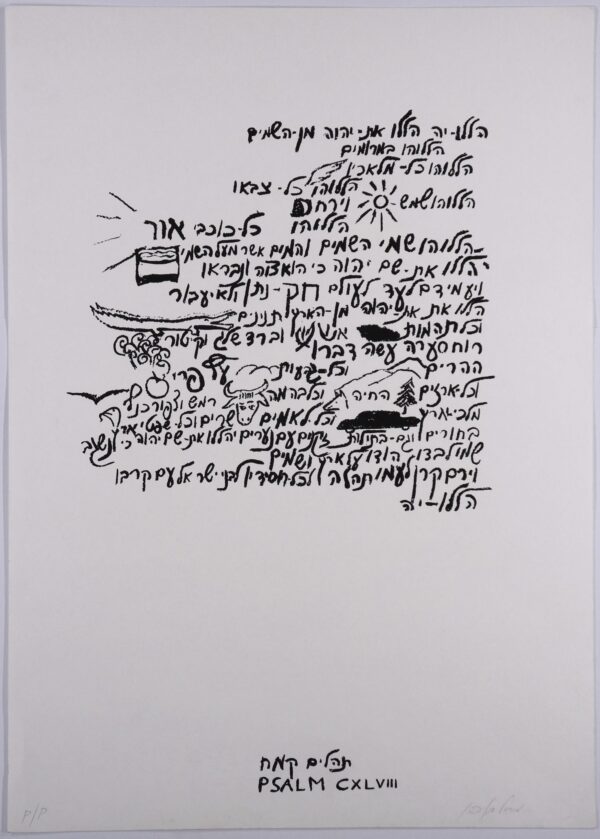 הללו-יה הללו את-יהוה מן-השמים
הללוהו במרומים
הללוהו כל-מלאכיו הללוהו כל-צבאו
הללוהו שמש וירח
הללוהו כל-כוכבי אור
הללוהו שמי השמים והמים אשר מעל השמים
יהללו את-שם יהוה כי הוא צוה ונבראו
ויעמידם לעד לעולם חק-נתן ולא יעבור
הללו את יהוה מן-הארץ תנינים
וכל תהמות אש וברד שלג וקיטור
רוח סערה עשה דברו
ההרים וכל-גבעות עץ פרי
וכל-ארזים החיה וכל בהמה רמש וצפור כנף
מלכי-ארץ וכל לאמים שרים וכל-שפטי ארץ
בחורים וגם-בתולות זקנים עם נערים יהללו את-שם יהוה כי נשגב
שמו לבדו הודו על ארץ ושמים
וירם קרן לעמו תהלה לכל-חסידיו לבני ישראל עם קרבו
הללו-יה
תהלים קמח
PSALM CXLVIII
P/P